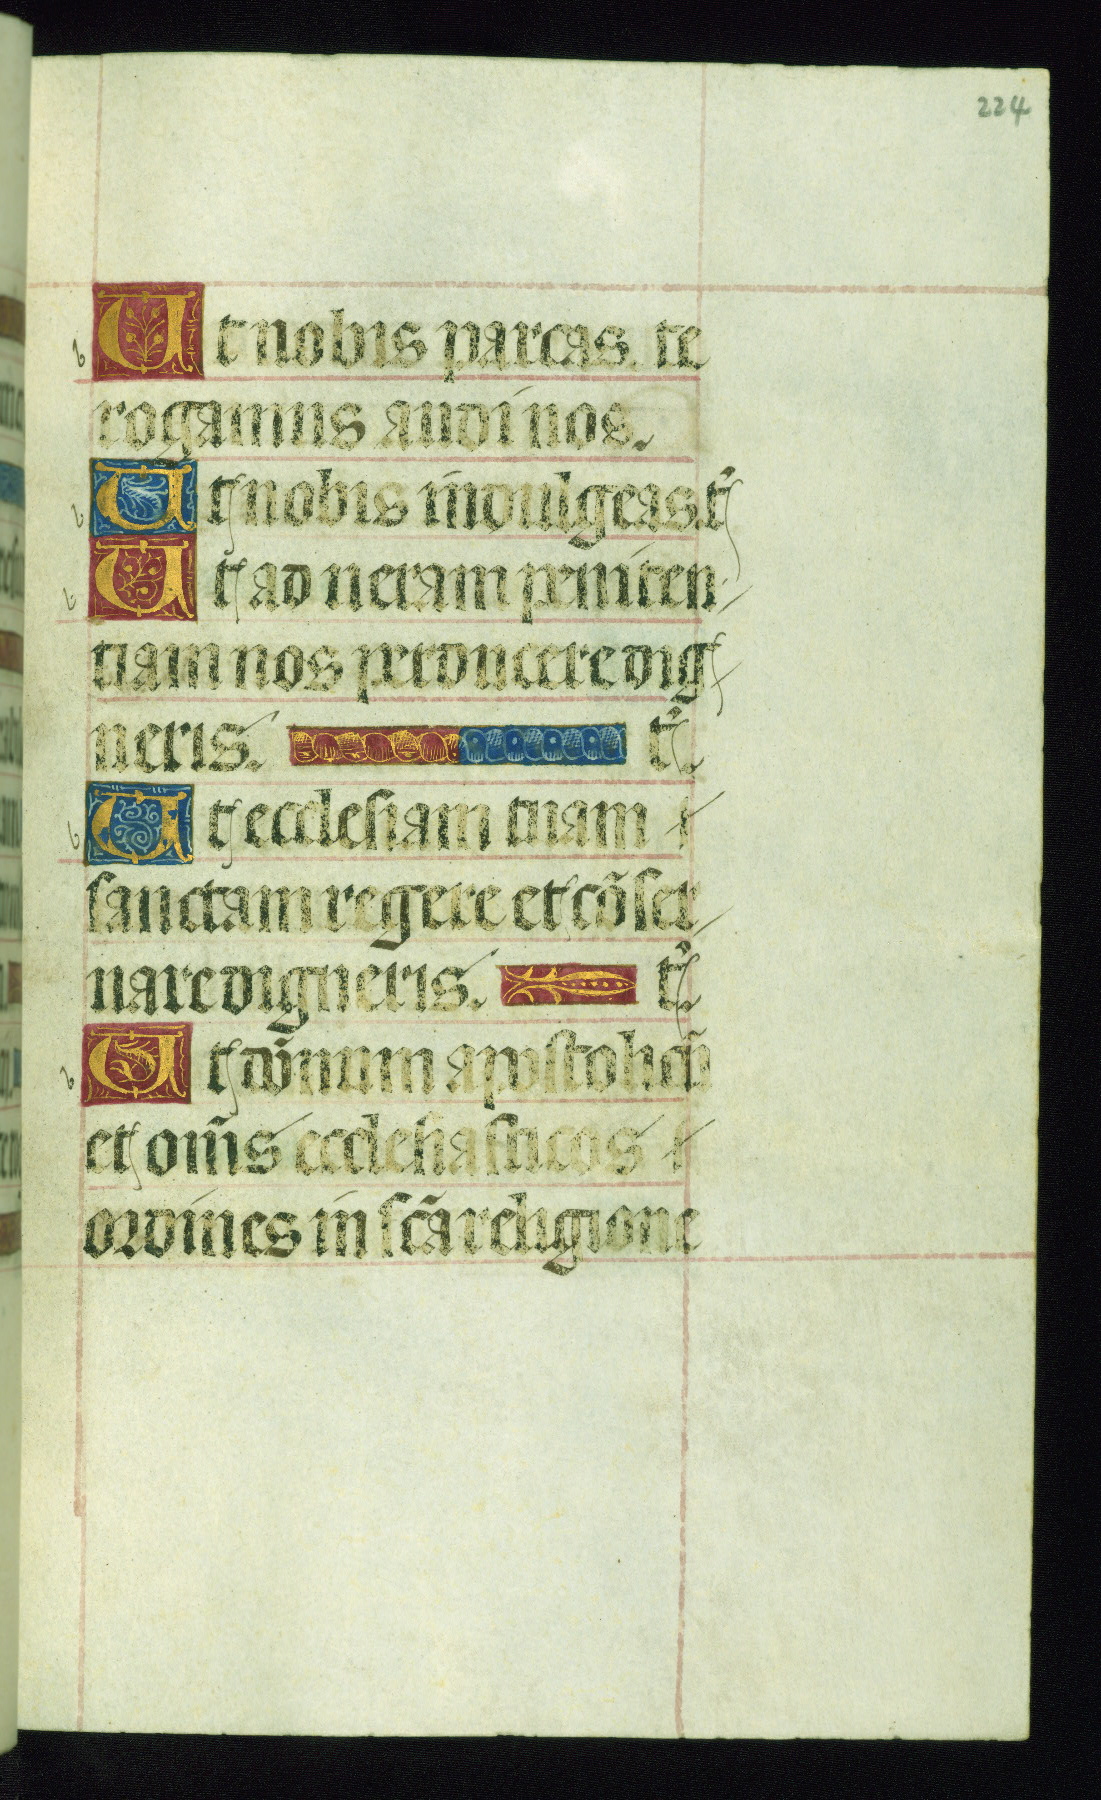 224
Ut nobis parcas. te
rogamus audi nos.
Ut nobis indulgeas. t̄
Ut ad ueram peniten
tiam nos perducere dig
neris. t̄.
Ut ecclesiam tuam
sanctam regere et cō̄ser
uare digneris. t̄.
Ut dōmnum apostolicū
et om̄s ecclesiasticos
ordines in sc̄a religione